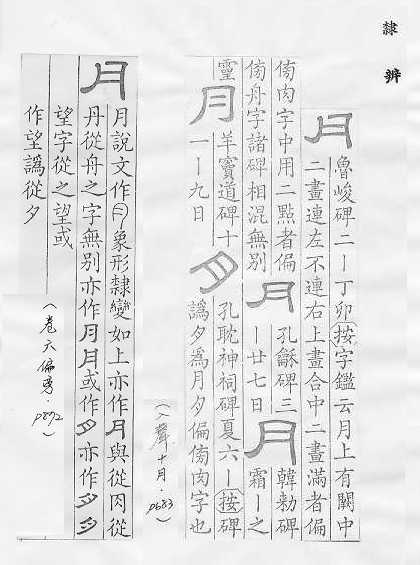 隸辨
月
魯峻碑二丨丁卯按字鑑云月上有闕中
二畫連左不連右上畫合中二畫滿者偏
傍肉字中用二點者偏
傍舟字諸碑相混無别
月
孔龢碑三
丨廿七日
月
韓勑碑
霜丨之
靈
月
羊竇道碑十
一丨九日
孔耽神祠碑夏六丨按碑
譌夕爲月夕偏傍肉字也
(入聲十月·p683)
月
月說文作象形隸變如上亦作月與從肉從
丹從舟之字無别亦作月月或作夕亦作夕夕
望字從之望或
作望譌從夕
(卷六偏旁·p892)